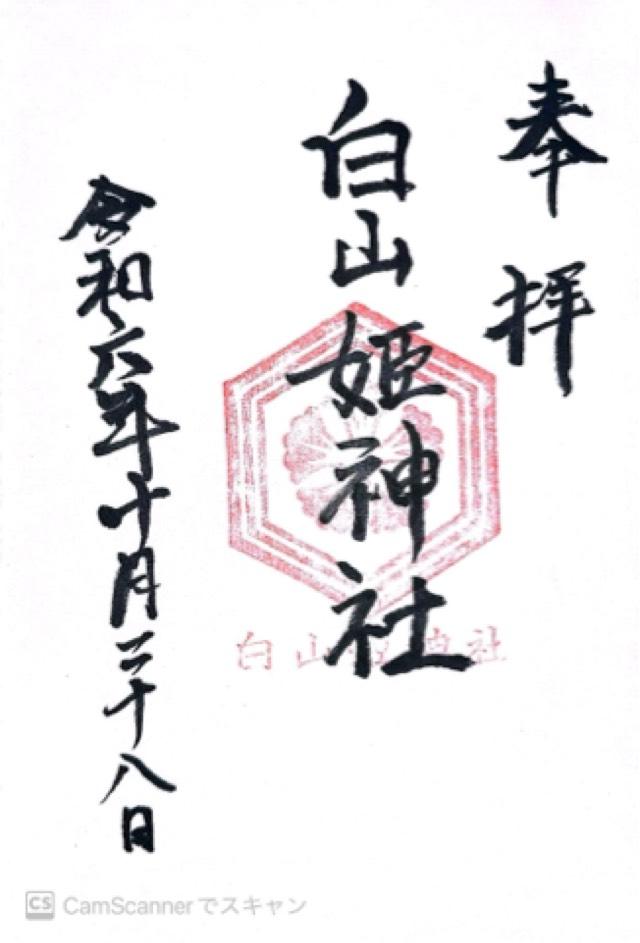 奉拝
白山姫神社
白山姫神社
令和六年十月二十八日
CS CamScannerでスキャン